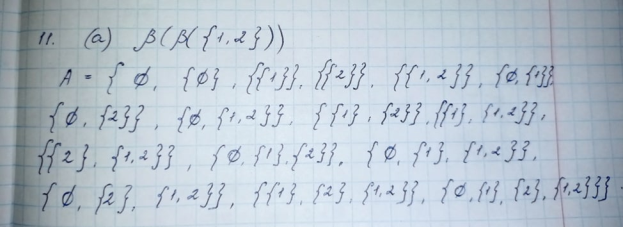 11. (a) β(β({1,2}))
A = { ∅, {∅}, {{1}}, {{2}}, {{1,2}}, {∅,{1}},
{∅, {2}}, {∅, {1,2}}, {{1}, {2}}, {{1}, {1,2}},
{{2}, {1,2}}, {∅,{1},{2}}, {∅, {1}, {1,2}},
{∅, {2}, {1,2}}, {{1}, {2}, {1,2}}, {∅,{1}, {2}, {1,2}}}.